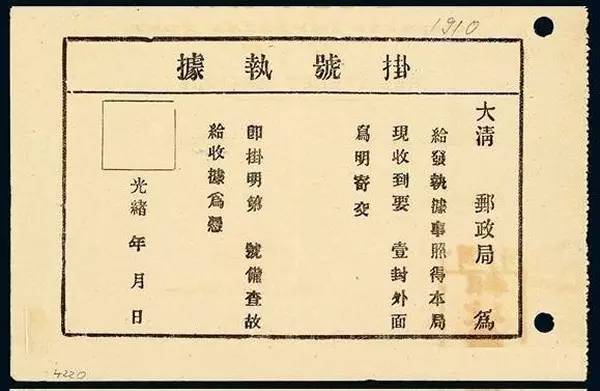 1910
掛號執據
大清 郵政局 為
給發執據事照得本局
現收到要 壹封外面
寫明寄交
卽掛明第 號備查故
給收據為憑
光緒 年 月 日
4220